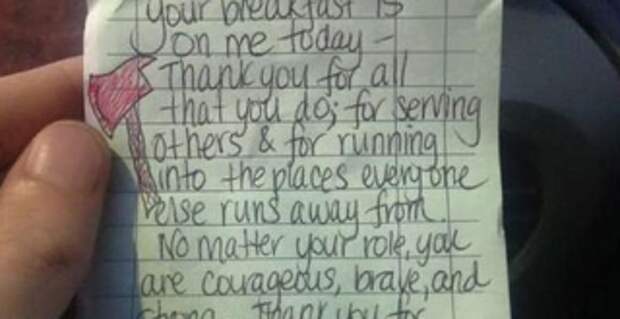 your breakfast is
on me today -
Thank you for all
that you do; for serving
others & for running
into the places everyone
else runs away from.
No matter your role, you
are courageous, brave, and
strong. Thank you for